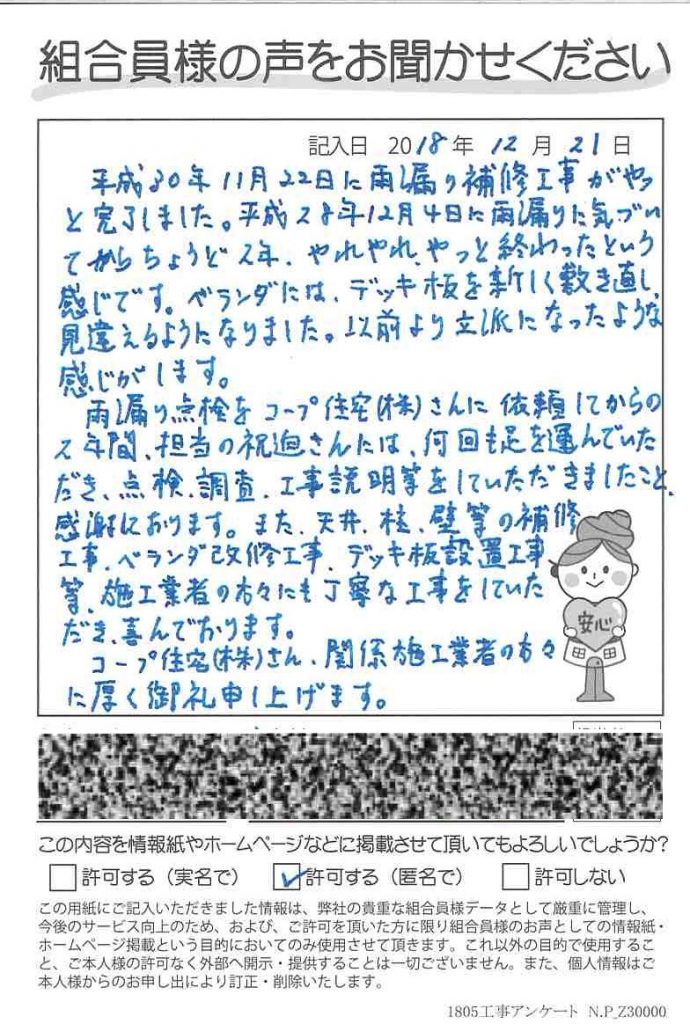 組合員様の声をお聞かせください
記入日 2018年 12月 21日
平成30年11月22日に雨漏り補修工事がやっ
と完了しました。平成28年12月4日に雨漏りに気づい
てからちょうど2年、やれやれ、やっと終わったという
感じです。ベランダには、デッキ板を新しく敷き直し、
見違えるようになりました。以前より立派になったような
感じがします。
雨漏り点検をコープ住宅(株)さんに依頼してからの
2年間、担当の祝迫さんには、何回も足を運んでいた
だき、点検、調査、工事説明等をしていただきましたこと、
感謝しております。また、天井、柱、壁等の補修
工事、ベランダ改修工事、デッキ板設置工事
等、施工業者の方々にも丁寧な工事をしていた
だき、喜んでおります。
コープ住宅(株)さん、関係施工業者の方々
に厚く御礼申し上げます。
安心
この内容を情報紙やホームページなどに掲載させて頂いてもよろしいでしょうか?
許可する（実名で） 許可する（匿名で） 許可しない
この用紙にご記入いただきました情報は、弊社の貴重な組合員様データとして厳重に管理し、
今後のサービス向上のため、および、ご許可を頂いた方に限り組合員様のお声としての情報紙・
ホームページ掲載という目的においてのみ使用させて頂きます。これ以外の目的で使用するこ
と、ご本人様の許可なく外部へ開示・提供することは一切ございません。また、個人情報はご
本人様からのお申し出により訂正・削除いたします。
1805工事アンケート N.P_Z30000